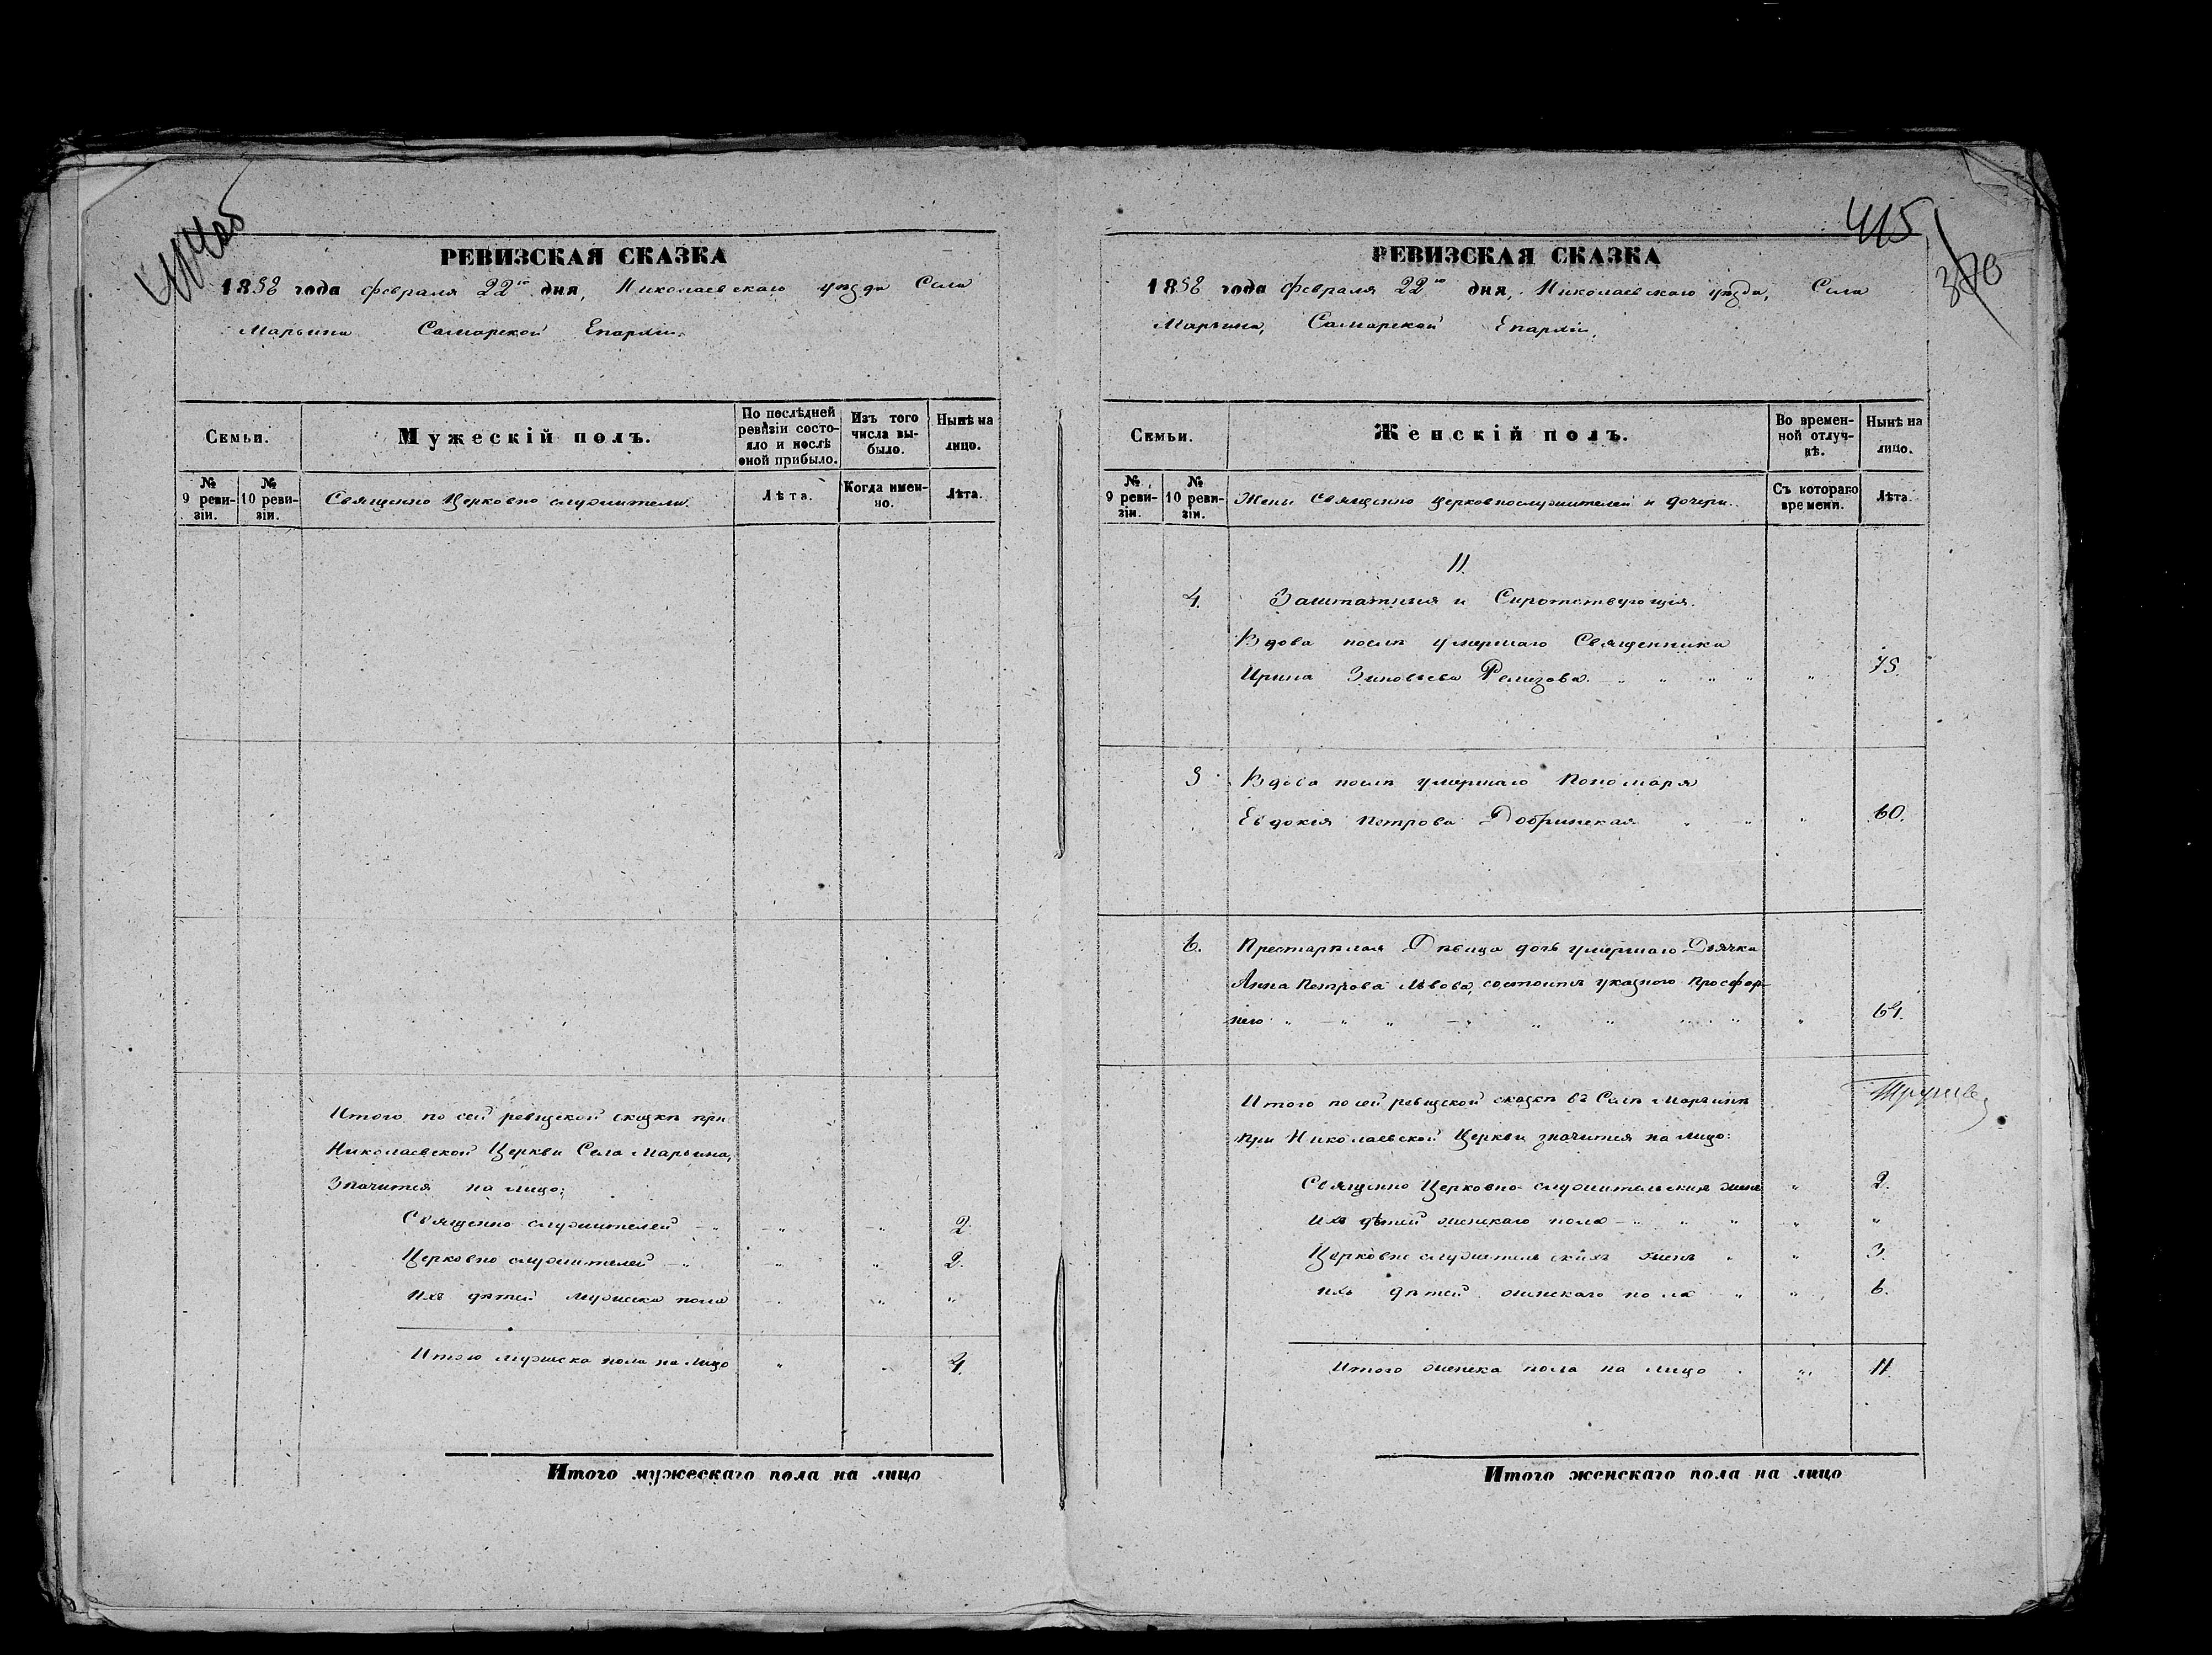 414об
РЕВИЗСКАЯ СКАЗКА
1858 года февраля 22го дня, Николаевскаго уѣзда Села
Марьина Самарской Епархіи.
Семьи.
Мужескій полъ.
По послѣдней ревизіи состояло и послѣ оной прибыло.
Изъ того числа выбыло.
Нынѣ на лицо.
№ 9 ревизіи.
№ 10 ревизіи.
Священно Церковно служители.
Лѣта.
Когда именно.
Лѣта.
Итого по сей ревизской сказкѣ при
Николаевской Церкви Села Марьина,
Значится на лицо:
Священно служителей - " - " - " 2.
Церковно служителей - " - " " 2.
Ихъ дѣтей мужеска пола - " "
Итого мужеска пола на лицо " " 4.
Итого мужескаго пола на лицо
415
РЕВИЗСКАЯ СКАЗКА
1858 года февраля 22го дня, Николаевскаго уѣзда, Села
Марьина, Самарской Епархіи.
Семьи.
Женскій полъ.
Во временной отлучкѣ.
Нынѣ на лицо.
№ 9 ревизіи.
№ 10 ревизіи.
Жены Священно Церковнослужителей и дочери.
Съ котораго времени.
Лѣта.
II.
4. Заштатныя и Сиротствующія.
Вдова послѣ умершаго Священника
Ирина Зиновьева Ремизова. - " " " " " 75.
5 Вдова послѣ умершаго Пономаря
Евдокія Петрова Добринская " " " 60.
6. Престарѣлая Дѣвица дочь умершаго Дьячка
Анна Петрова Львова, состоитъ указного Просфор-
нею " - " " - " " " " " " 64.
Итого по сей ревизской сказкѣ въ Селѣ Марьинѣ
при Николаевской Церкви значится на лицо:
Священно Церковно-служительскихъ женъ " 2.
Ихъ дѣтей женскаго пола - " " " " "
Церковно служительскихъ женъ " " 3.
ихъ дѣтей женскаго пола " " 6.
Итого женска пола на лицо " " 11.
Итого женскаго пола на лицо